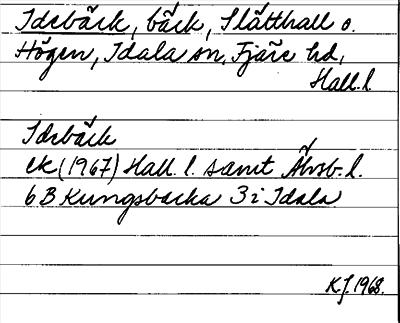 Idebäck, bäck, Slätthall o.
Högen, Idala sn, Fjäre hd,
Hall. l.
Idebäck
ek (1967) Hall. l. samt Älvsb. l.
6 B Kungsbacka 3 i Idala
K.J. 1968.